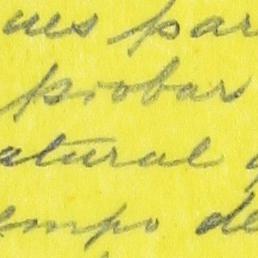 ues par
piobar
atural
empo de